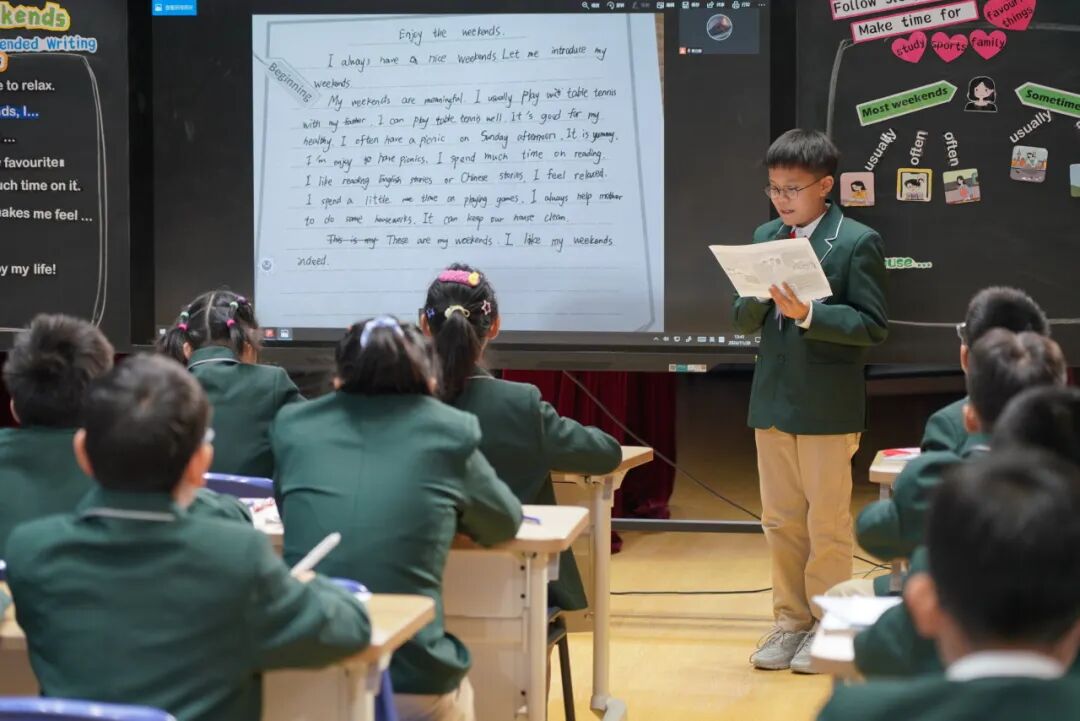 kends
ended Writing
e to relax.
ds, I...
...
y favourite
uch time on it.
akes me feel ...
oy my life!
Enjoy the weekends.
Beginning
I always have a nice weekends. Let me introduce my
weekends.
My weekends are meaningful. I usually play wit table tennis
with my father. I can play table tennis well. It's good for my
healthy. I often have a picnic on Sunday afternoon. It is yummy.
I'm enjoy go have picnics. I spend much time on reading.
I like reading English stories or Chinese stories. I feel relaxed.
I spend a little me time on playing games. I always help mother
to do some houseworks. It can keep our house clean.
This is my These are my weekends. I like my weekends
indeed.
Make time for
favourite
things
study
sports
family
Most weekends
Sometime
usually
often
often
usually
use...